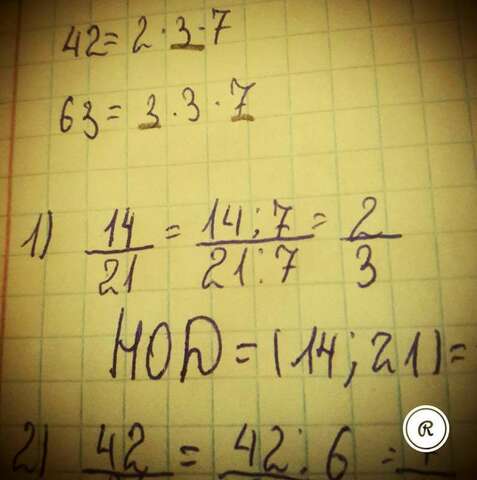 42 = 2 · 3 · 7
63 = 3 · 3 · 7
1) 14/21 = 14:7/21:7 = 2/3
НОД = (14; 21) =
2) 42 = 42:6 =
R